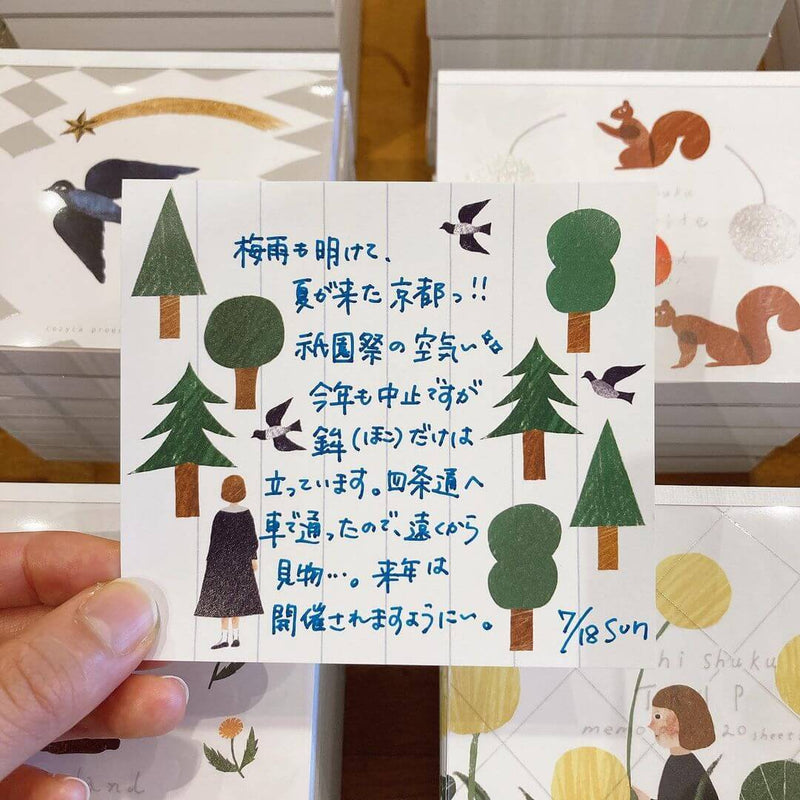 梅雨も明けて、
夏が来た京都っ!!
祇園祭の空気い
今年も中止ですが
鉾(ほこ)だけは
立っています。四条通へ
車で通ったので、遠くから
見物…。来年は
開催されますようにい。
7/18 Sun
cozyca produ
hi shuku
TRIP
memo
20 sheets